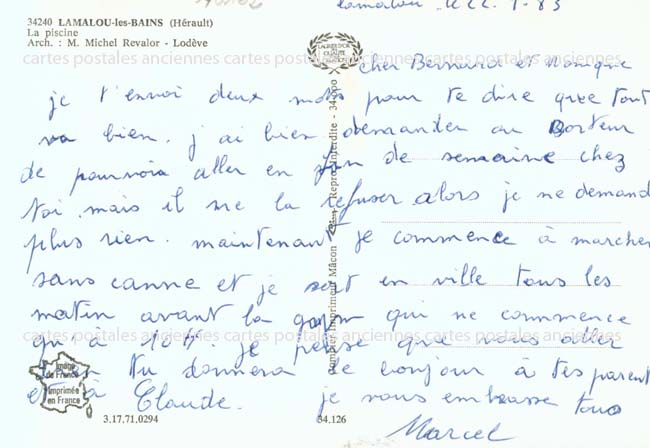 34240 LAMALOU-les-BAINS (Hérault)
La piscine
Arch. : M. Michel Revalor - Lodève
Lamalou
cartes postales anciennes cartes postales anciennes cartes postales anciennes cartes postales
cher Bernard et Monique
je t'envoi deux mots pour te dire que tout
va bien. j'ai bien demander au Docteur
de pourvoir aller en fin de semaine chez
toi mais il me la refuser alors je ne demand
plus rien. maintenant je commence à marcher
sans canne et je sort en ville tous les
matin avant la gym qui ne commence
cartes postales anciennes cartes postales anciennes cartes postales anciennes cartes postales
qu'à 10H je pense que vous aller
bien tu donnera le bonjour à tes parent
et à Claude. je vous embrasse tous
Marcel
Image de France
Imprimée en France
3.17.71.0294
34.126
Imprimeur Mâcon
Repro. interdite - 34.000